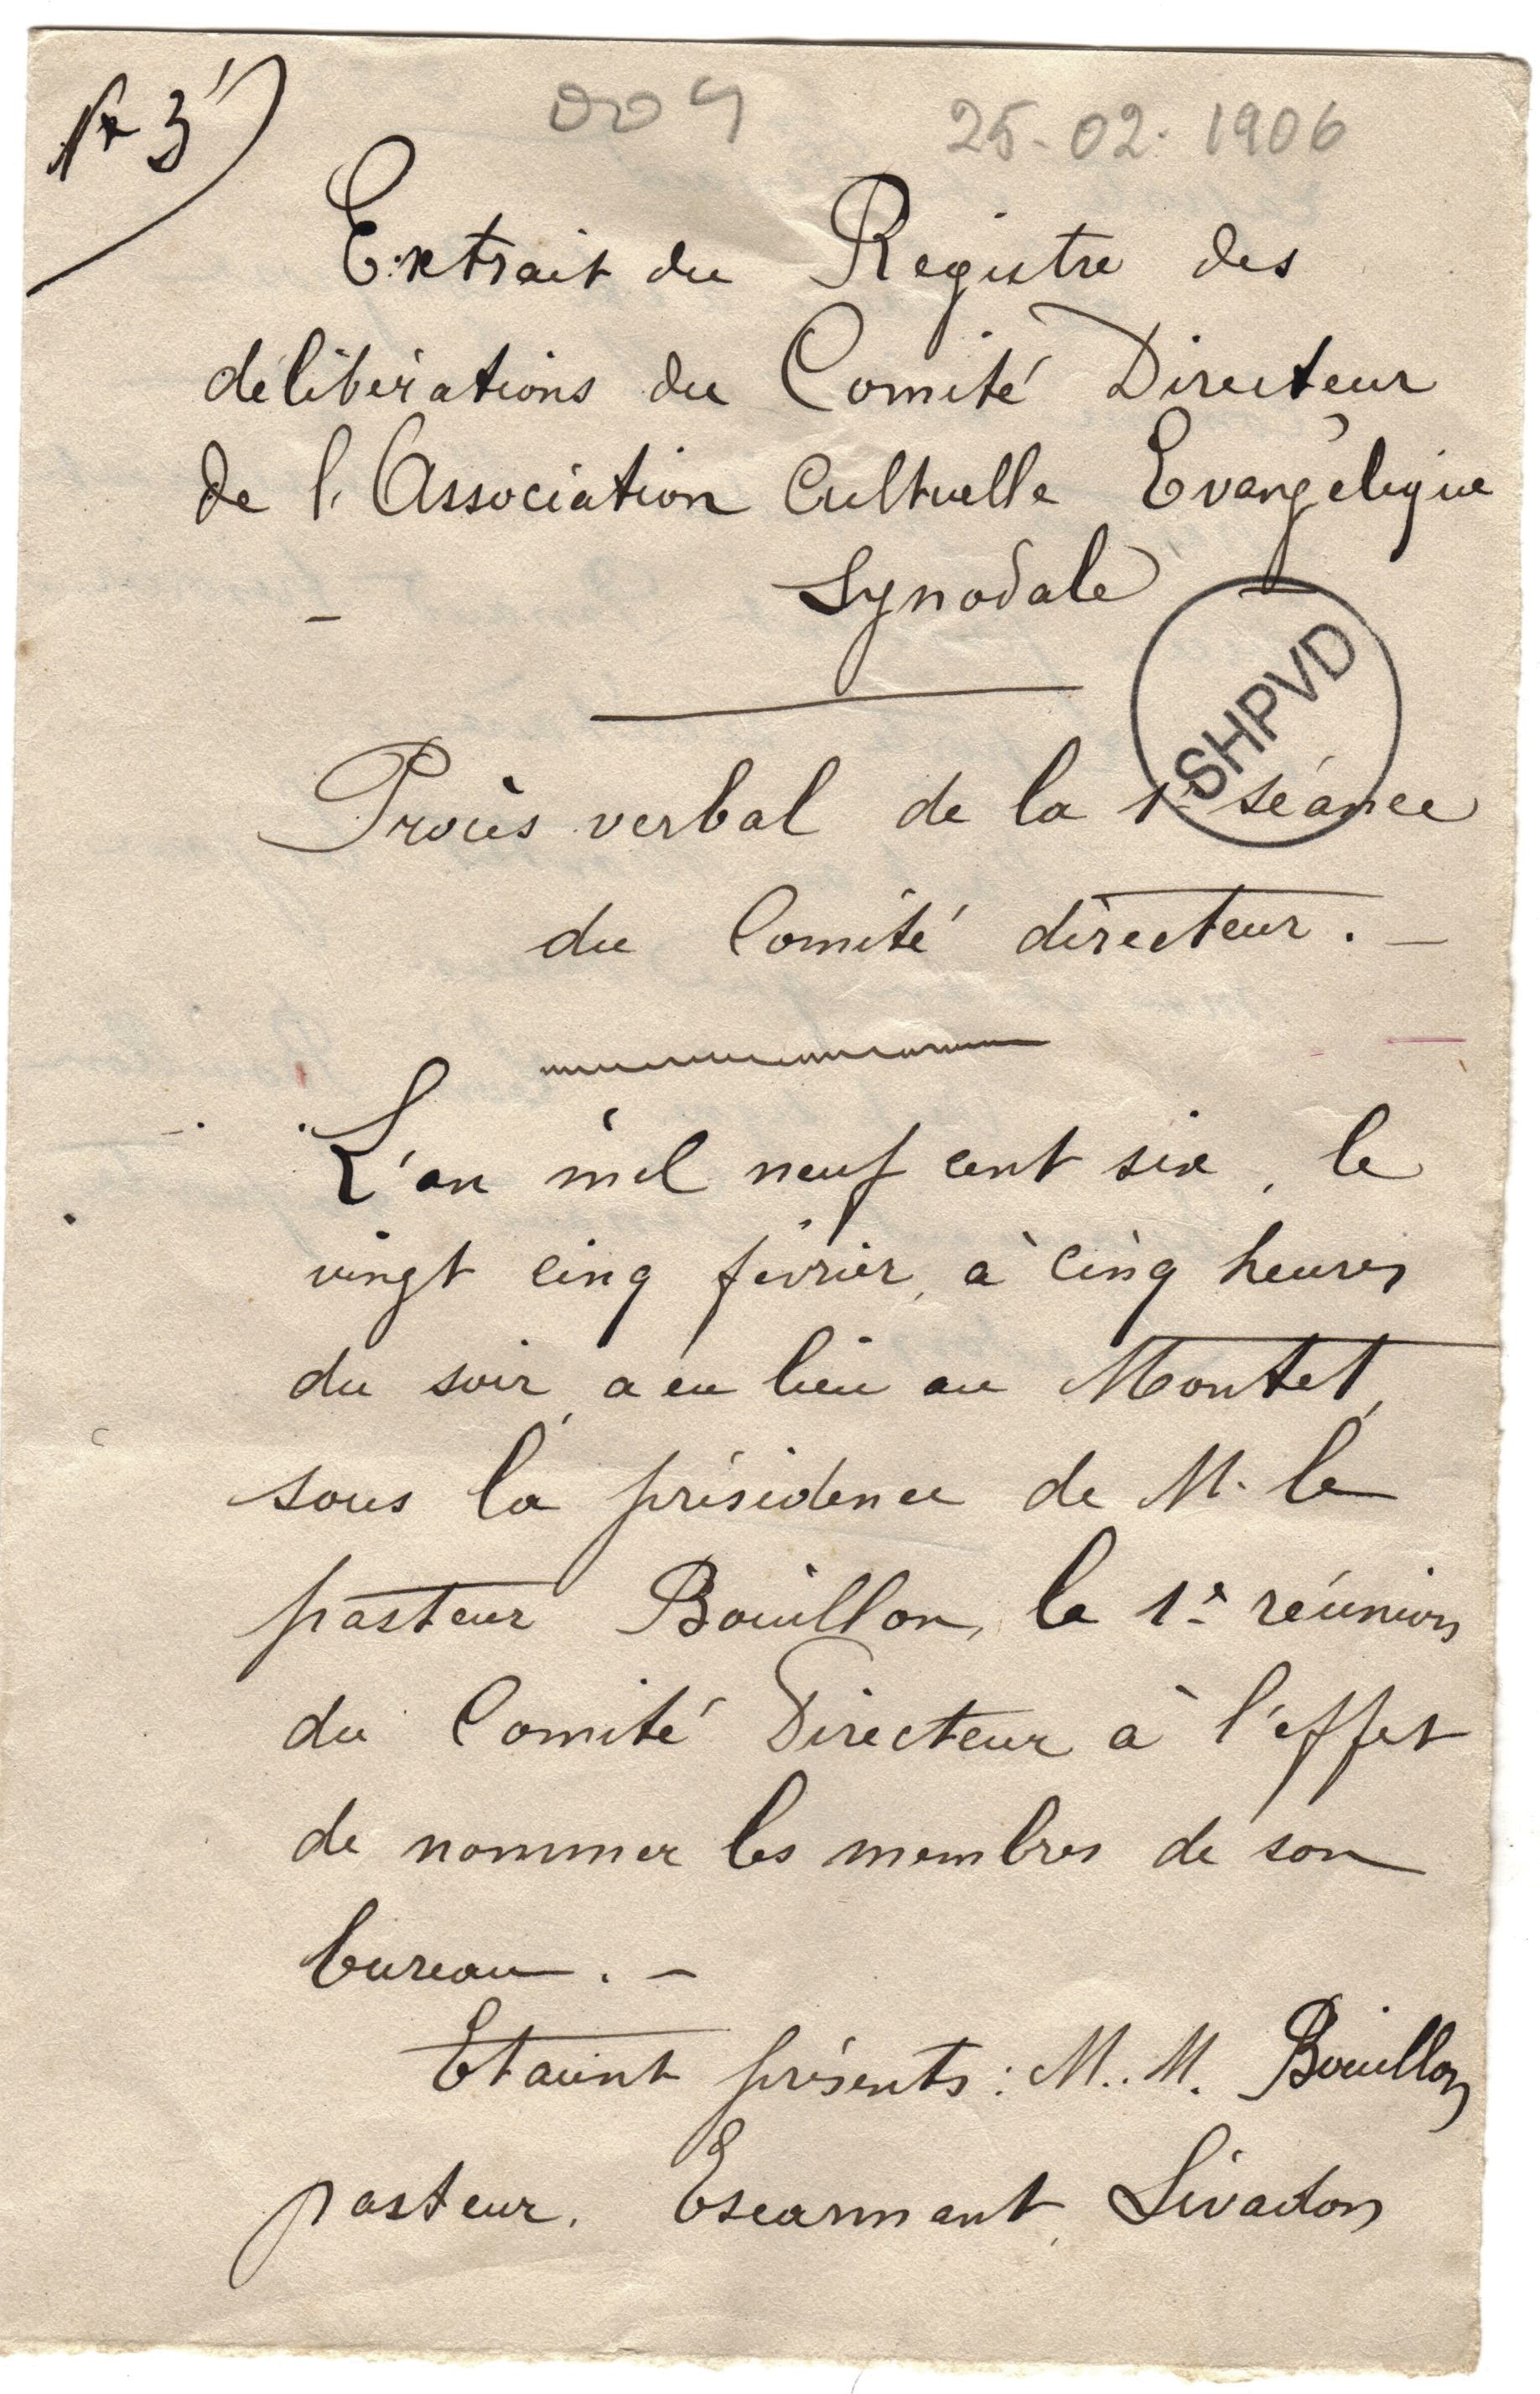 N° 3
009 25-02-1906
Extrait du Registre des
délibérations du Comité Directeur
de l'Association Cultuelle Evangélique
Synodale
SHPVD
Procès verbal de la 1e séance
du Comité directeur. -
L'an mil neuf cent six, le
vingt cinq février, à cinq heures
du soir, a eu lieu au Montet,
sous la présidence de M. le
pasteur Bouillon, la 1e réunion
du Comité Directeur à l'effet
de nommer les membres de son
bureau. -
Etaient présents : M. M. Bouillon
pasteur, Escarmant, Livadon